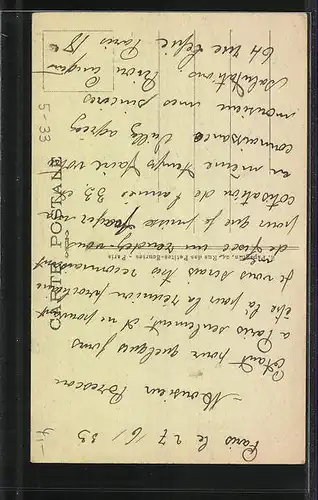 Paris le 27/6/33
Monsieur
Etant pour quelques jours
a Paris seulement, et ne pouvant
être là pour la réunion prochaine
je vous serais très reconnaissant
de fixer un rendez vous
pour que je puisse payer ma
cotisation de l'année 33 et
en même temps faire votre
connaissance. Veuillez agréer
monsieur mes sincères
salutations
64 rue
Paris 18e
CARTE POSTALE
Rue des Petites-Écuries, Paris
5-33